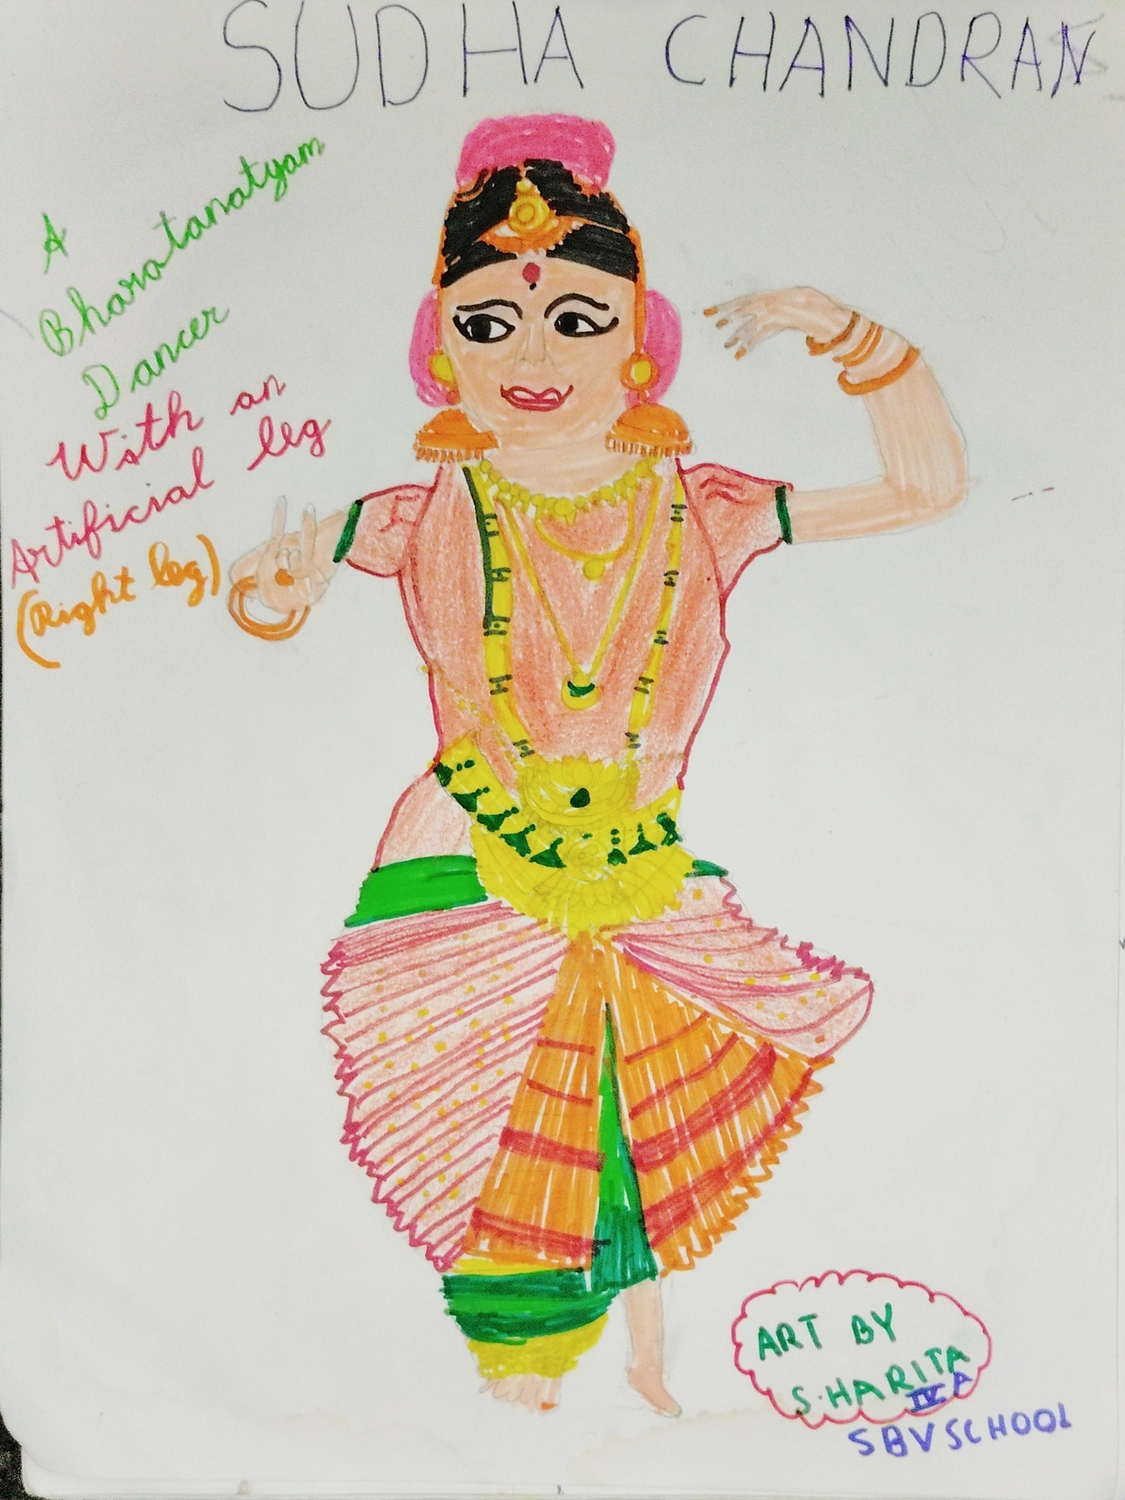 SUDHA CHANDRAN
A
Bharatanatyam
Dancer
With an
Artificial leg
(Right leg)
ART BY
S.HARITA
IV.A
SBVSCHOOL